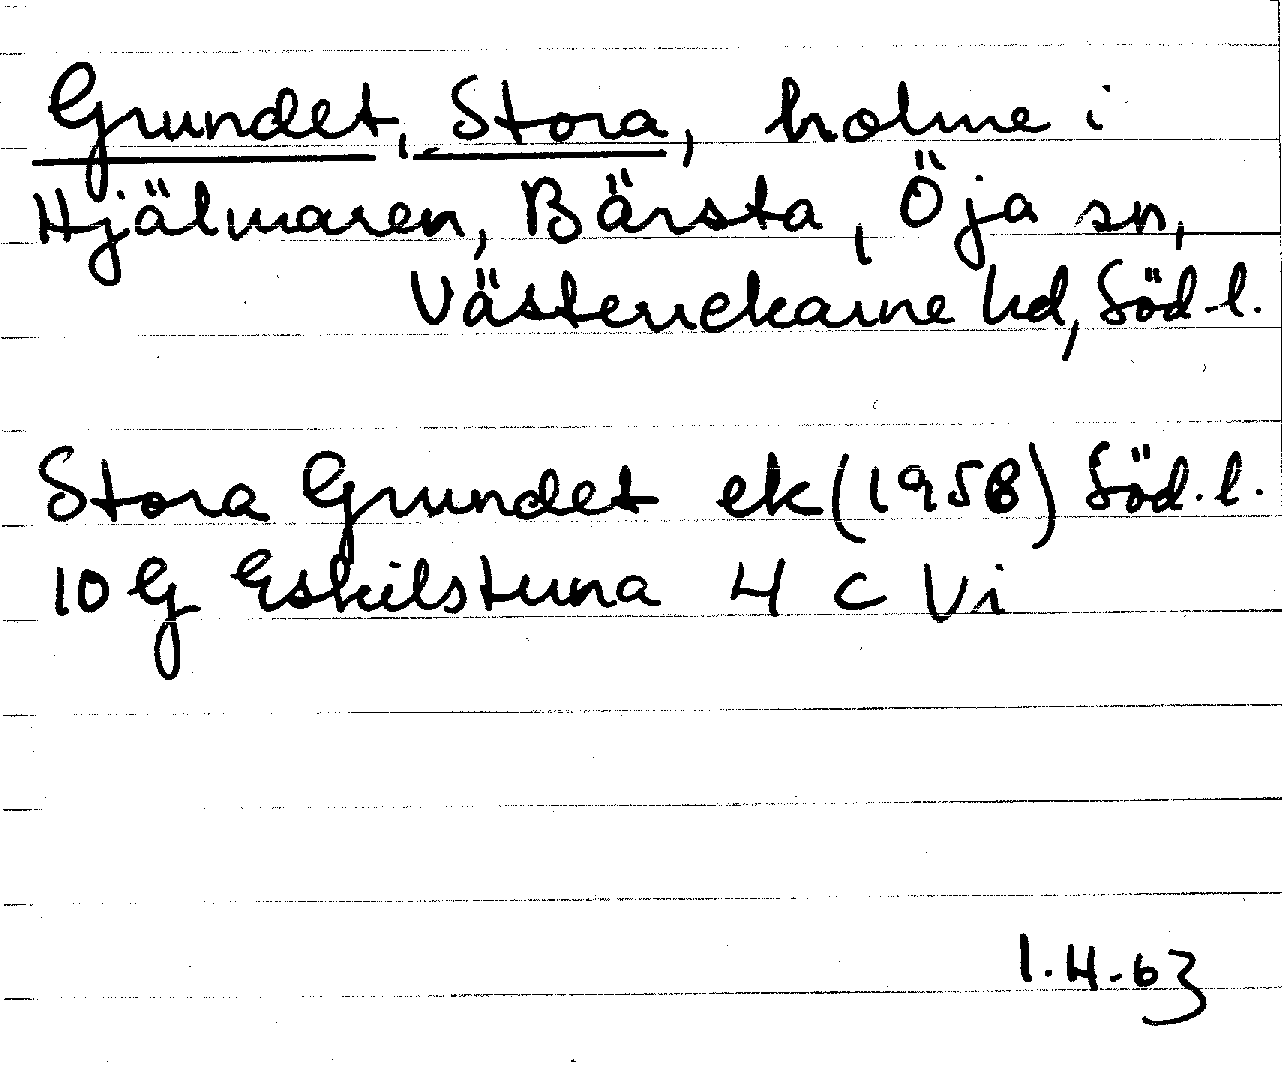 Grundet, Stora, holme i
Hjälmaren, Bärsta, Öja sn,
Västerrekarne hd, Söd. l.
Stora Grundet ek (1958) Söd. l.
10 G Eskilstuna 4 c Vi
1.4.63